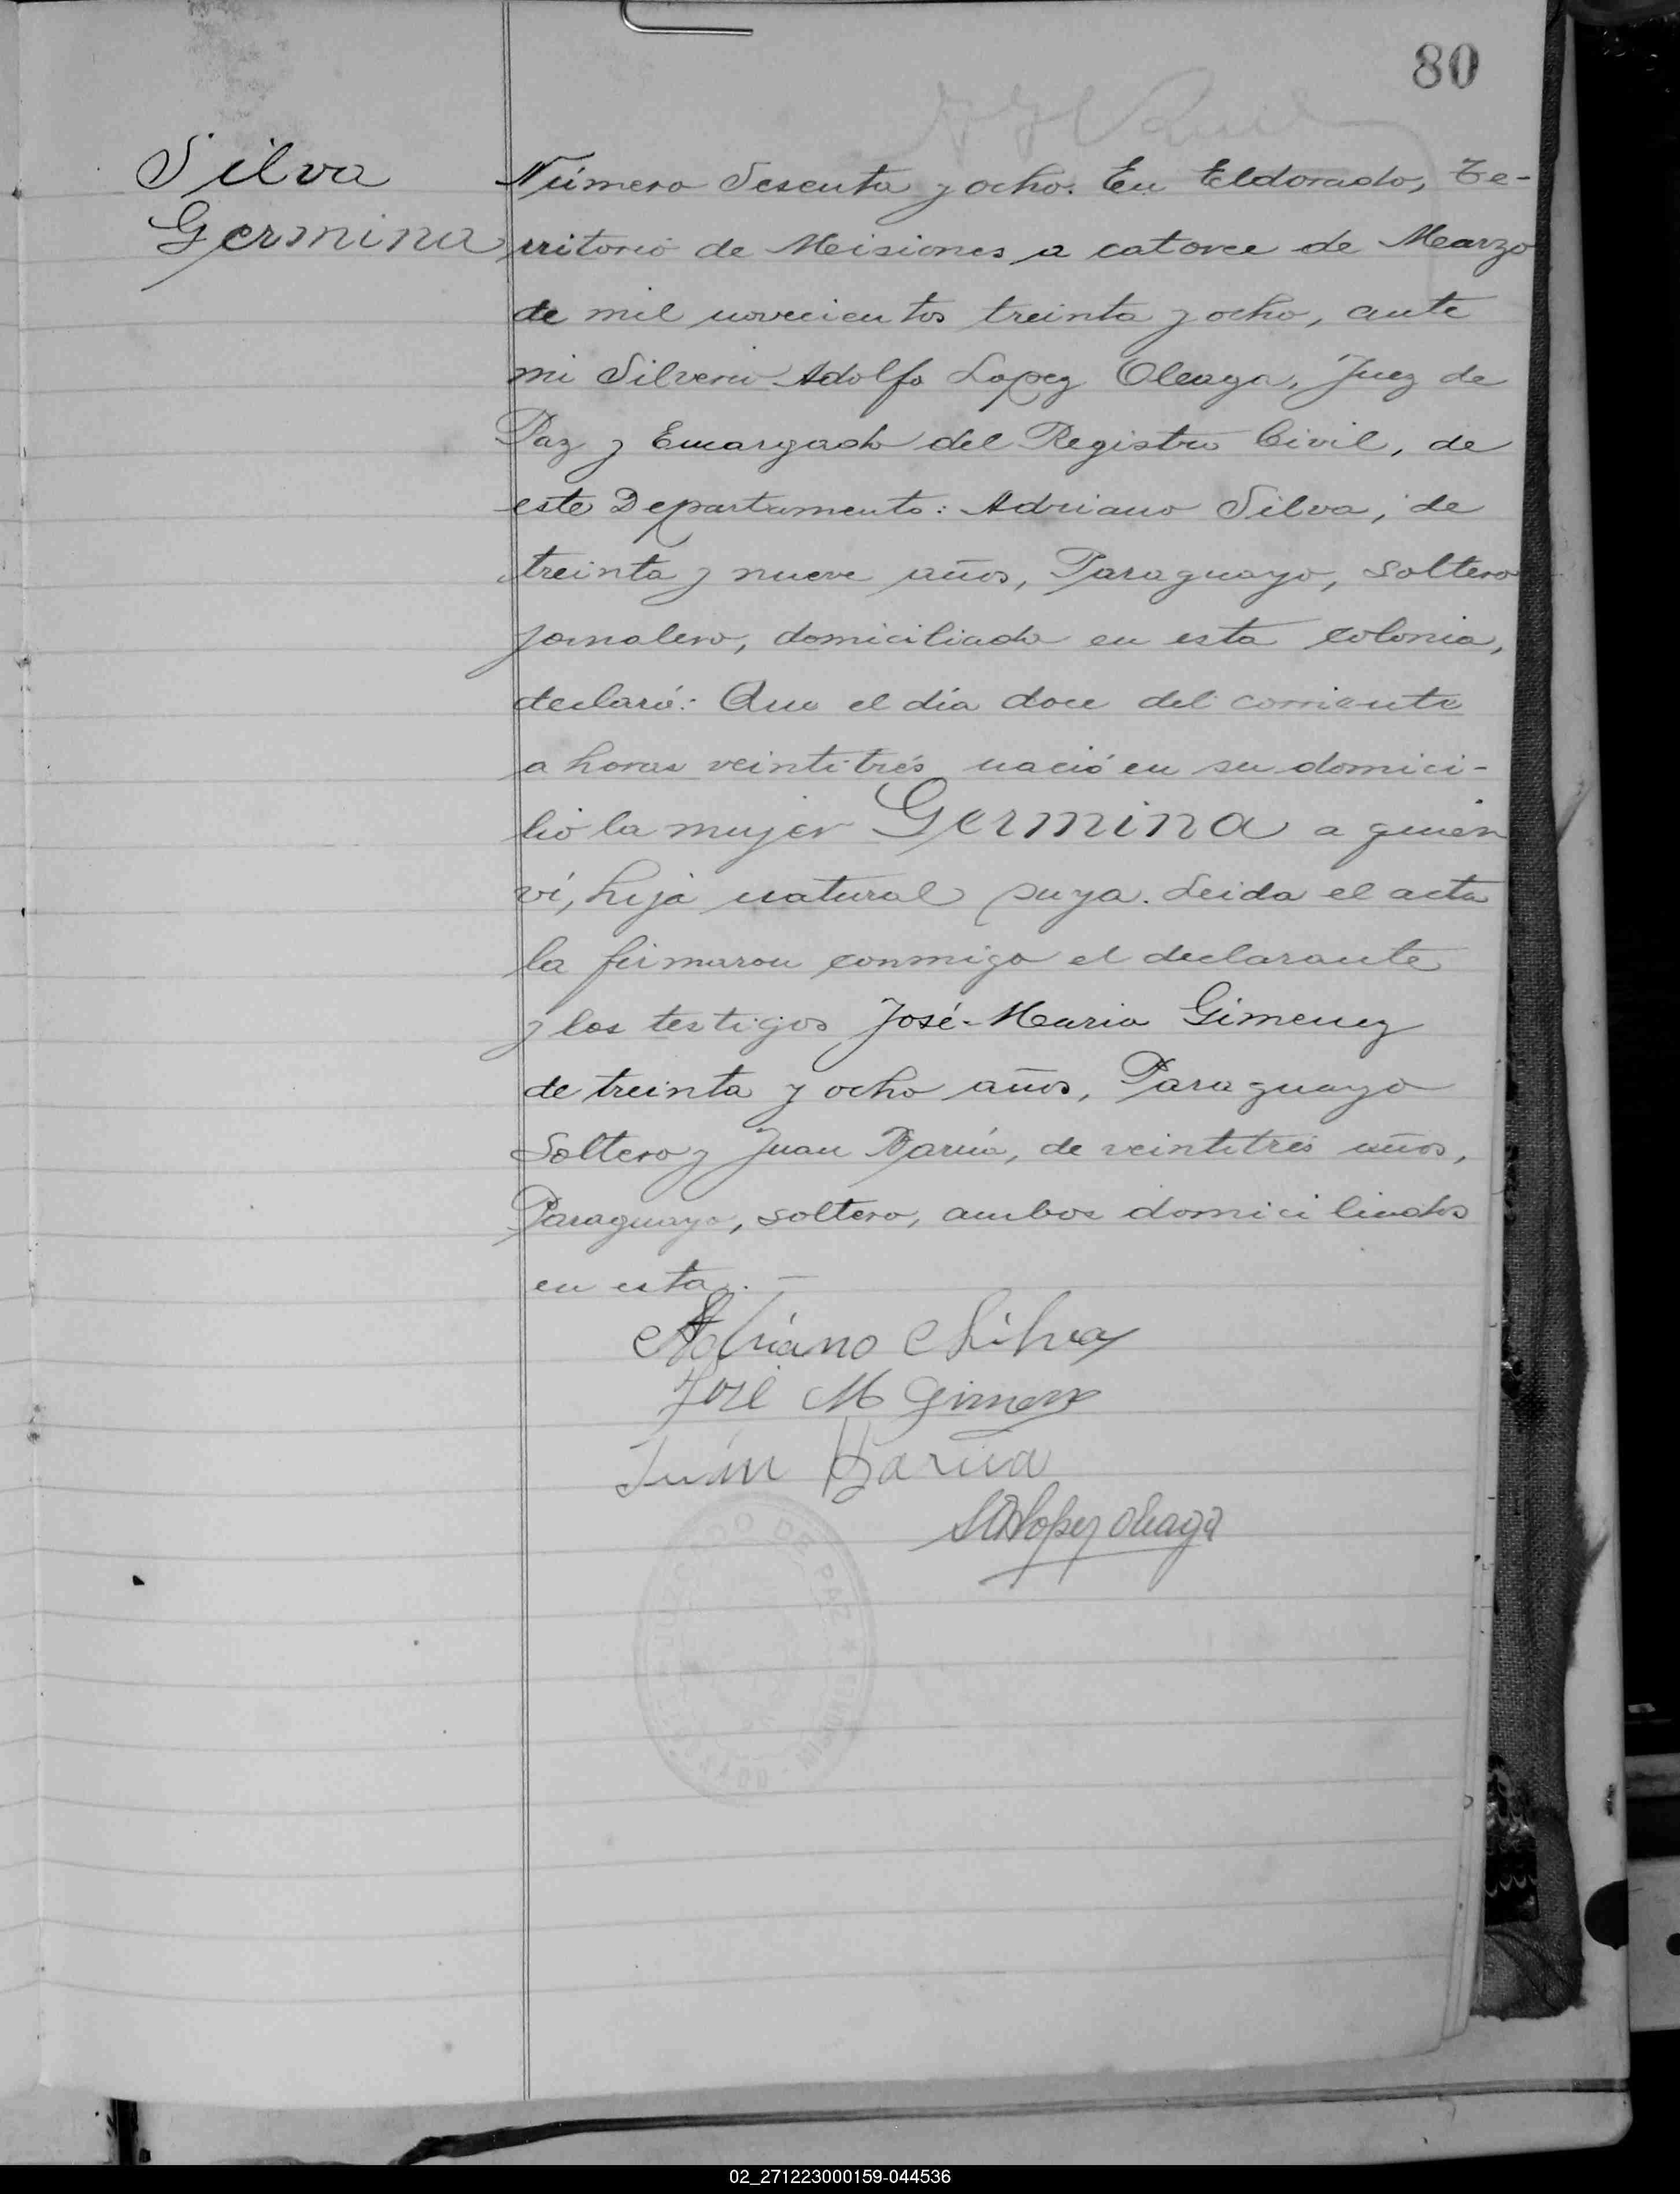 80
Silva
Germina
Número Sesenta y ocho. En Eldorado, Te-
rritorio de Misiones a catorce de Marzo
de mil novecientos treinta y ocho, ante
mi Silverio Adolfo Lopez Oleaga, Juez de
Paz y Encargado del Registro Civil, de
este Departamento: Adriano Silva, de
treinta y nueve años, Paraguayo, soltero
jornalero, domiciliado en esta colonia,
declaró: Que el día doce del corriente
a horas veintitrés nació en su domici-
lio la mujer Germina a quien
ví, hija natural suya. Leida el acta
la firmaron conmigo el declarante
y los testigos José Maria Gimenez
de treinta y ocho años, Paraguayo
Soltero y Juan Barúa, de veintitres años,
Paraguayo, soltero, ambos domiciliados
en esta. —
Adriano Silva
José M Gimenez
Juan Barúa
SALopez Oleaga
JUZGADO DE PAZ
02_271223000159-044536